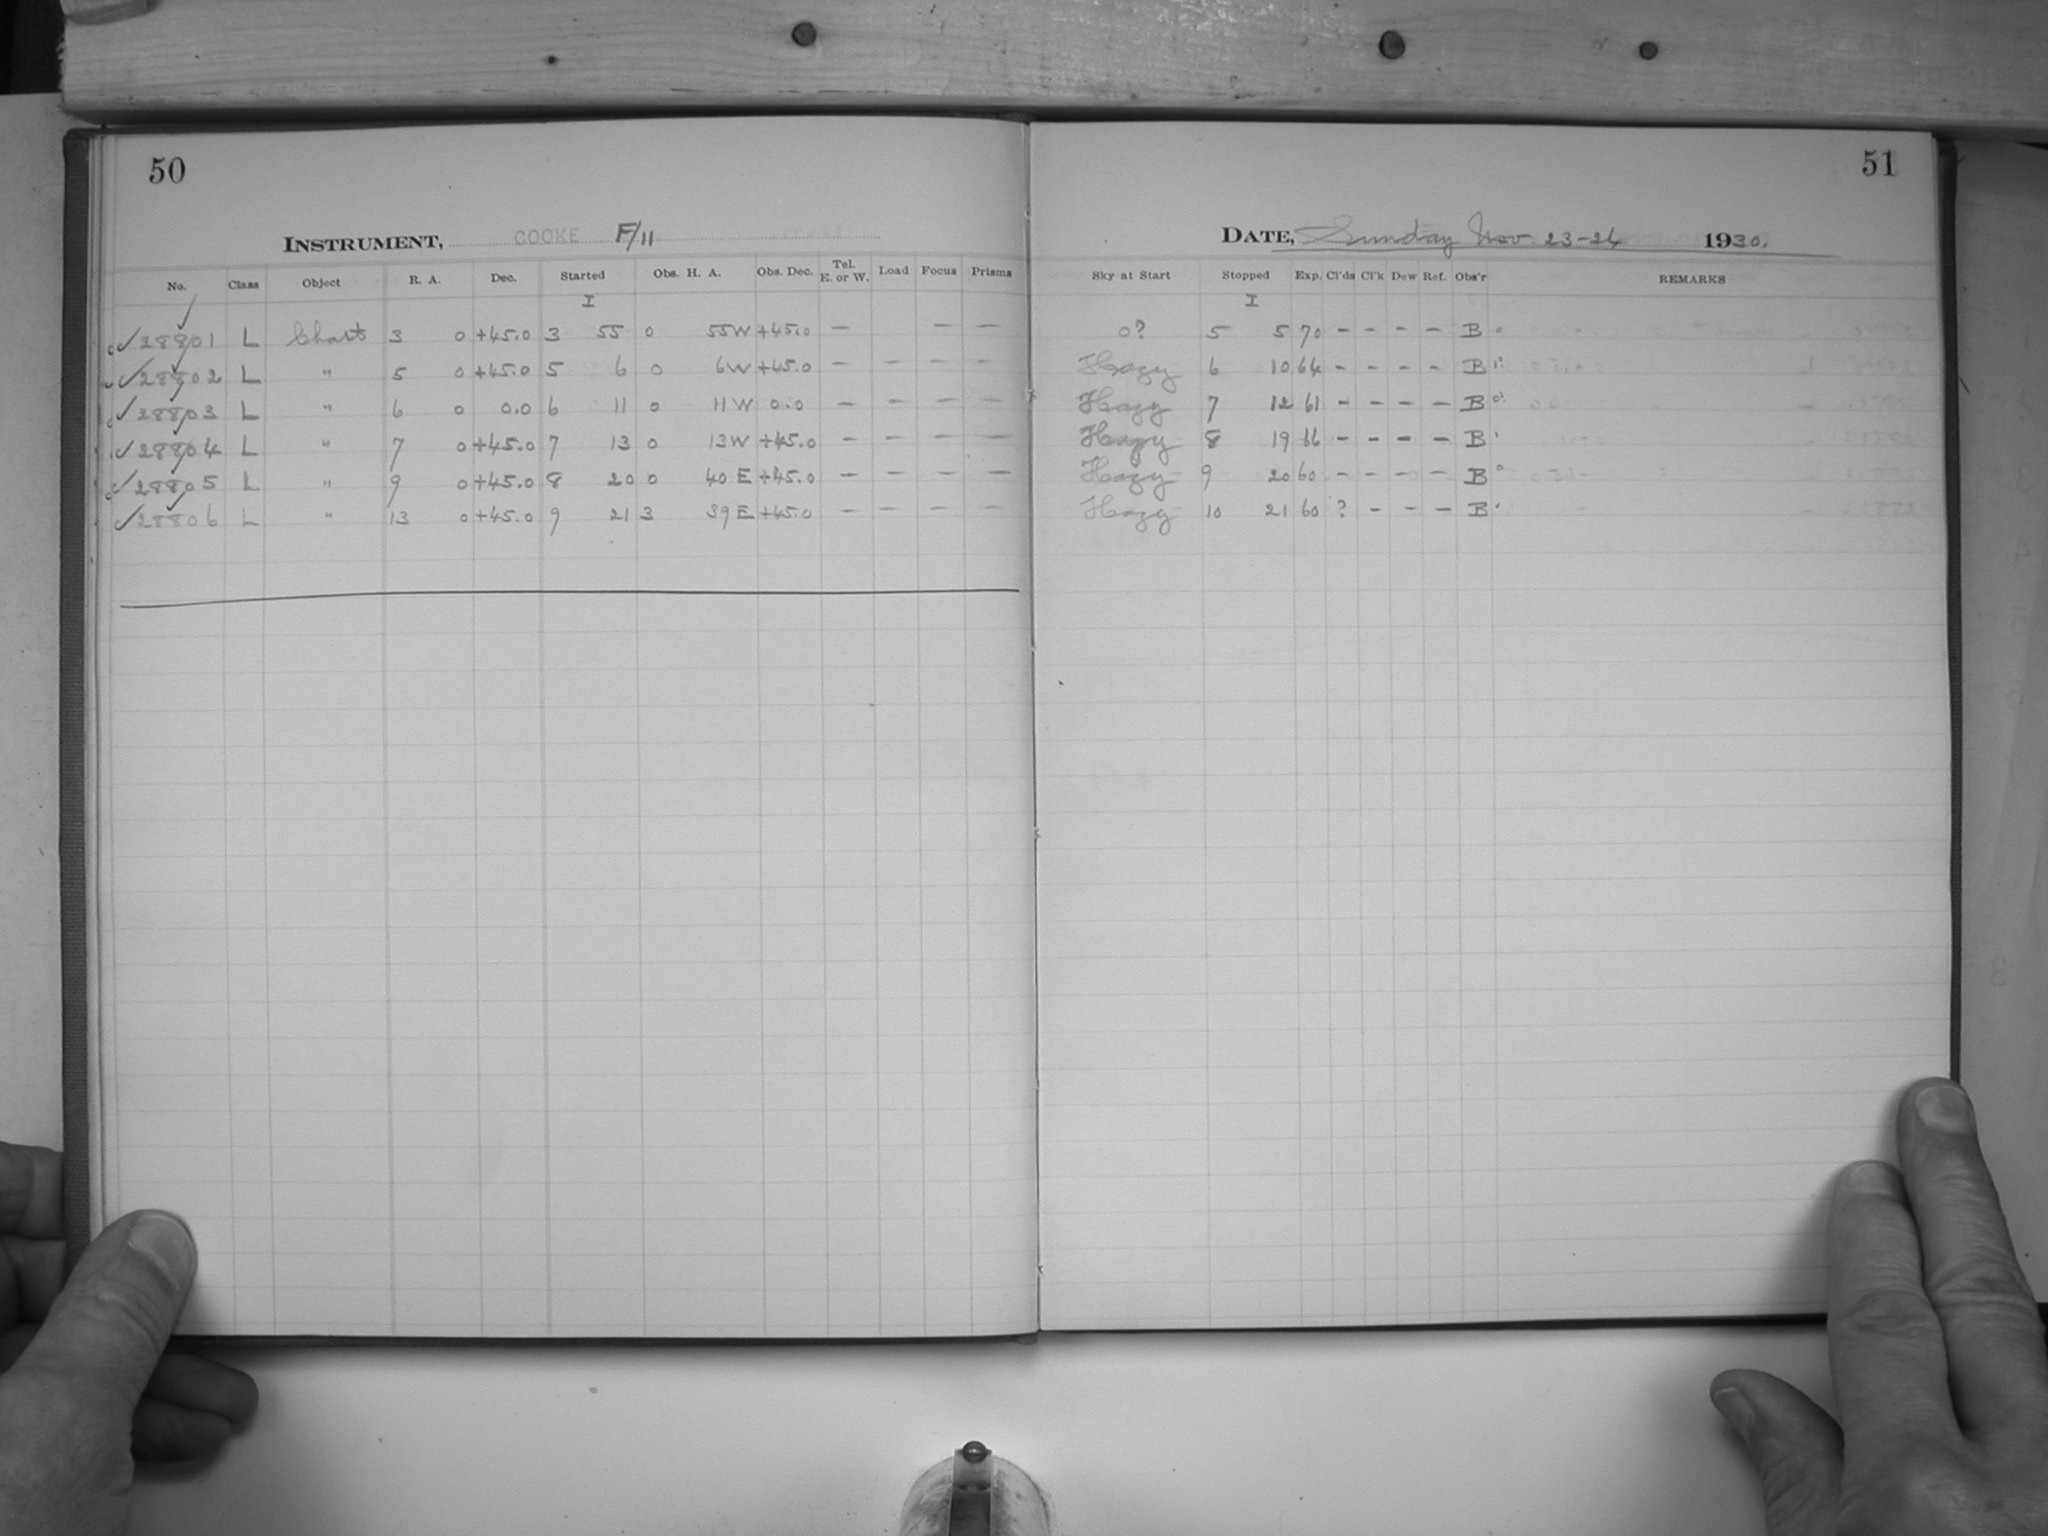 50
INSTRUMENT, COOKE F/11
No. Class Object R. A. Dec. Started Obs. H. A. Obs. Dec. Tel. E. or W. Load Focus Prisms
I
✓28801 L Charts 3 0 +45.0 3 55 0 55W +45.0 — — —
✓28802 L " 5 0 +45.0 5 6 0 6W +45.0 — — — —
✓28803 L " 6 0 0.0 6 11 0 11W 0.0 — — — —
✓28804 L " 7 0 +45.0 7 13 0 13W +45.0 — — — —
✓28805 L " 9 0 +45.0 8 20 0 40E +45.0 — — — —
✓28806 L " 13 0 +45.0 9 21 3 39E +45.0 — — — —
51
DATE, Sunday Nov. 23-24 1930.
Sky at Start Stopped Exp. Cl'ds Cl'k Dew Ref. Obs'r REMARKS
I
0? 5 5 70 - - - - B
Hazy 6 10 64 - - - - B
Hazy 7 12 61 - - - - B
Hazy 8 19 66 - - - - B
Hazy 9 20 60 - - - - B
Hazy 10 21 60 ? - - - B